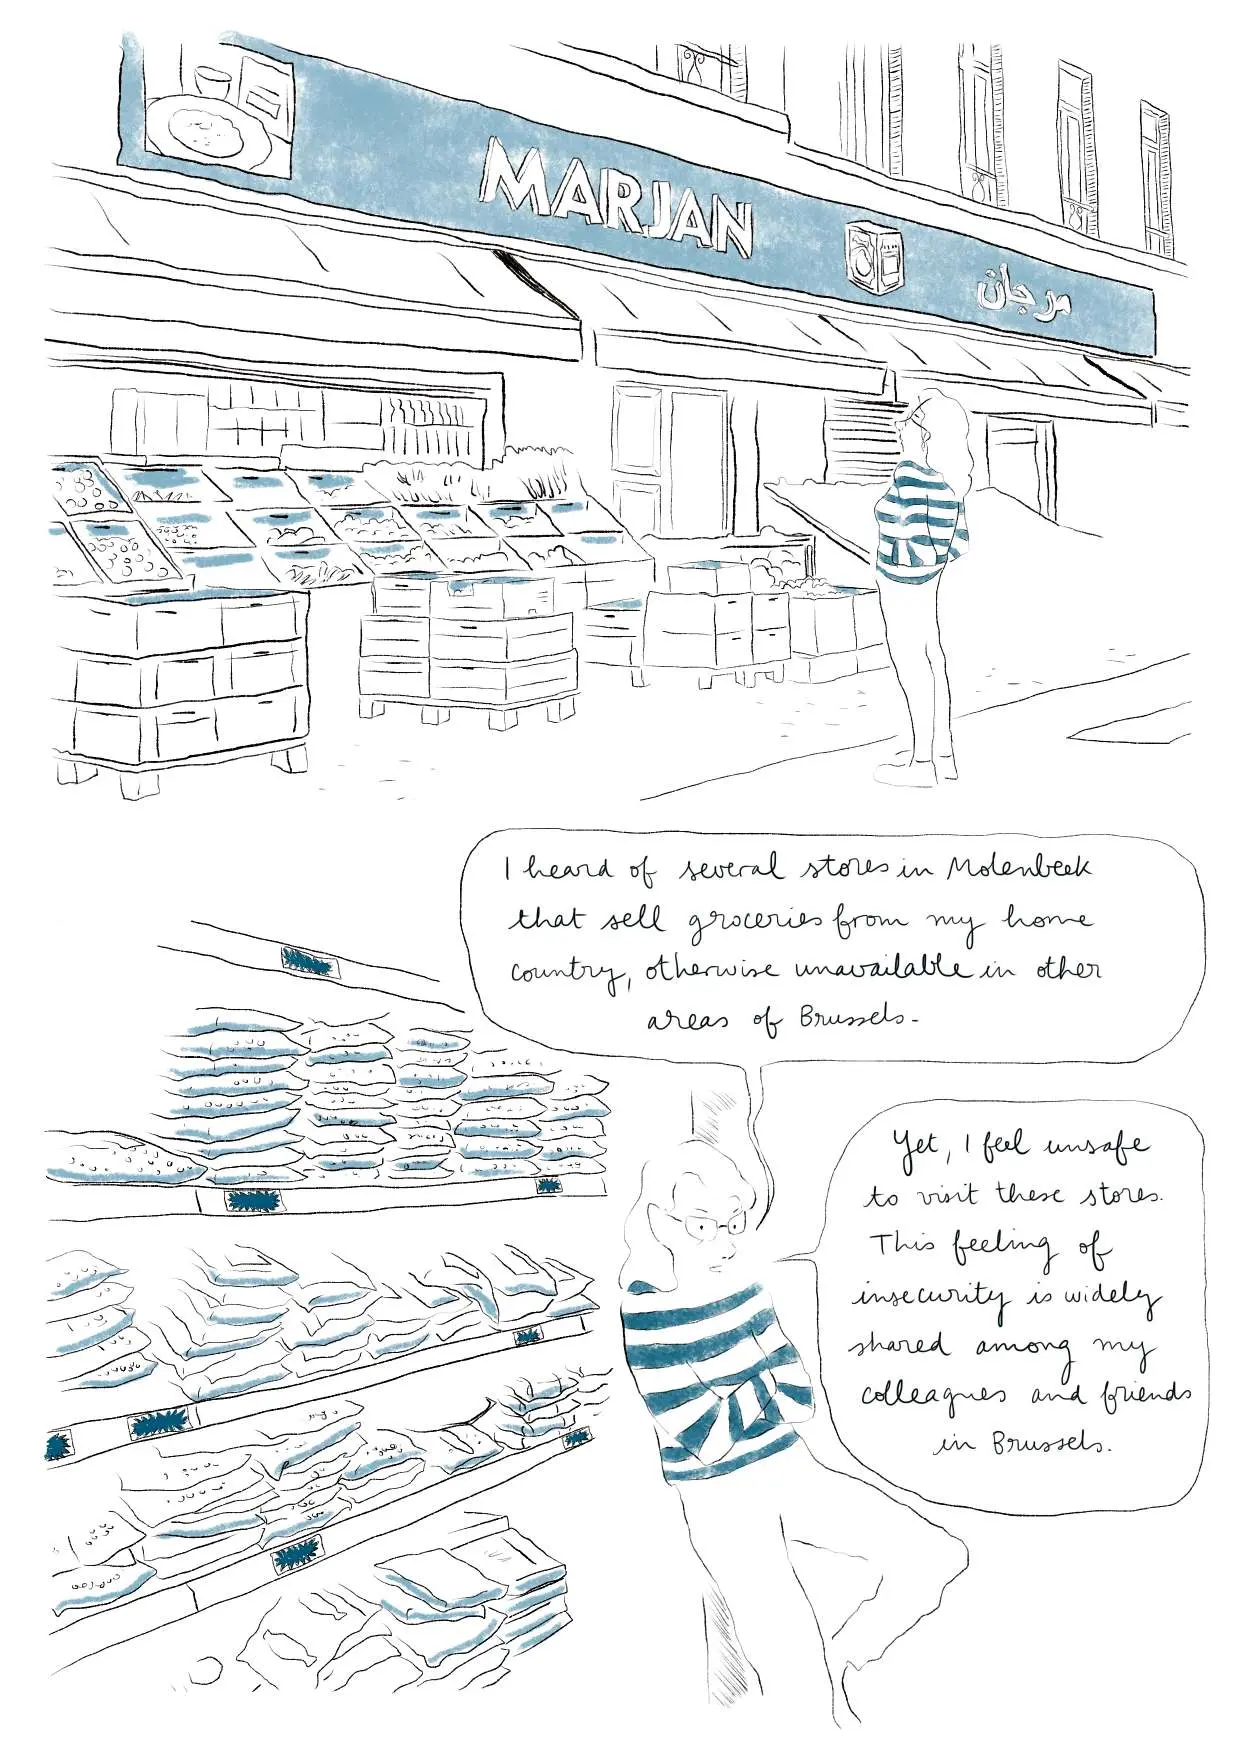 MARJAN
مرجان
I heard of several stores in Molenbeek
that sell groceries from my home
country, otherwise unavailable in other
areas of Brussels.
Yet, I feel unsafe
to visit these stores.
This feeling of
insecurity is widely
shared among my
colleagues and friends
in Brussels.